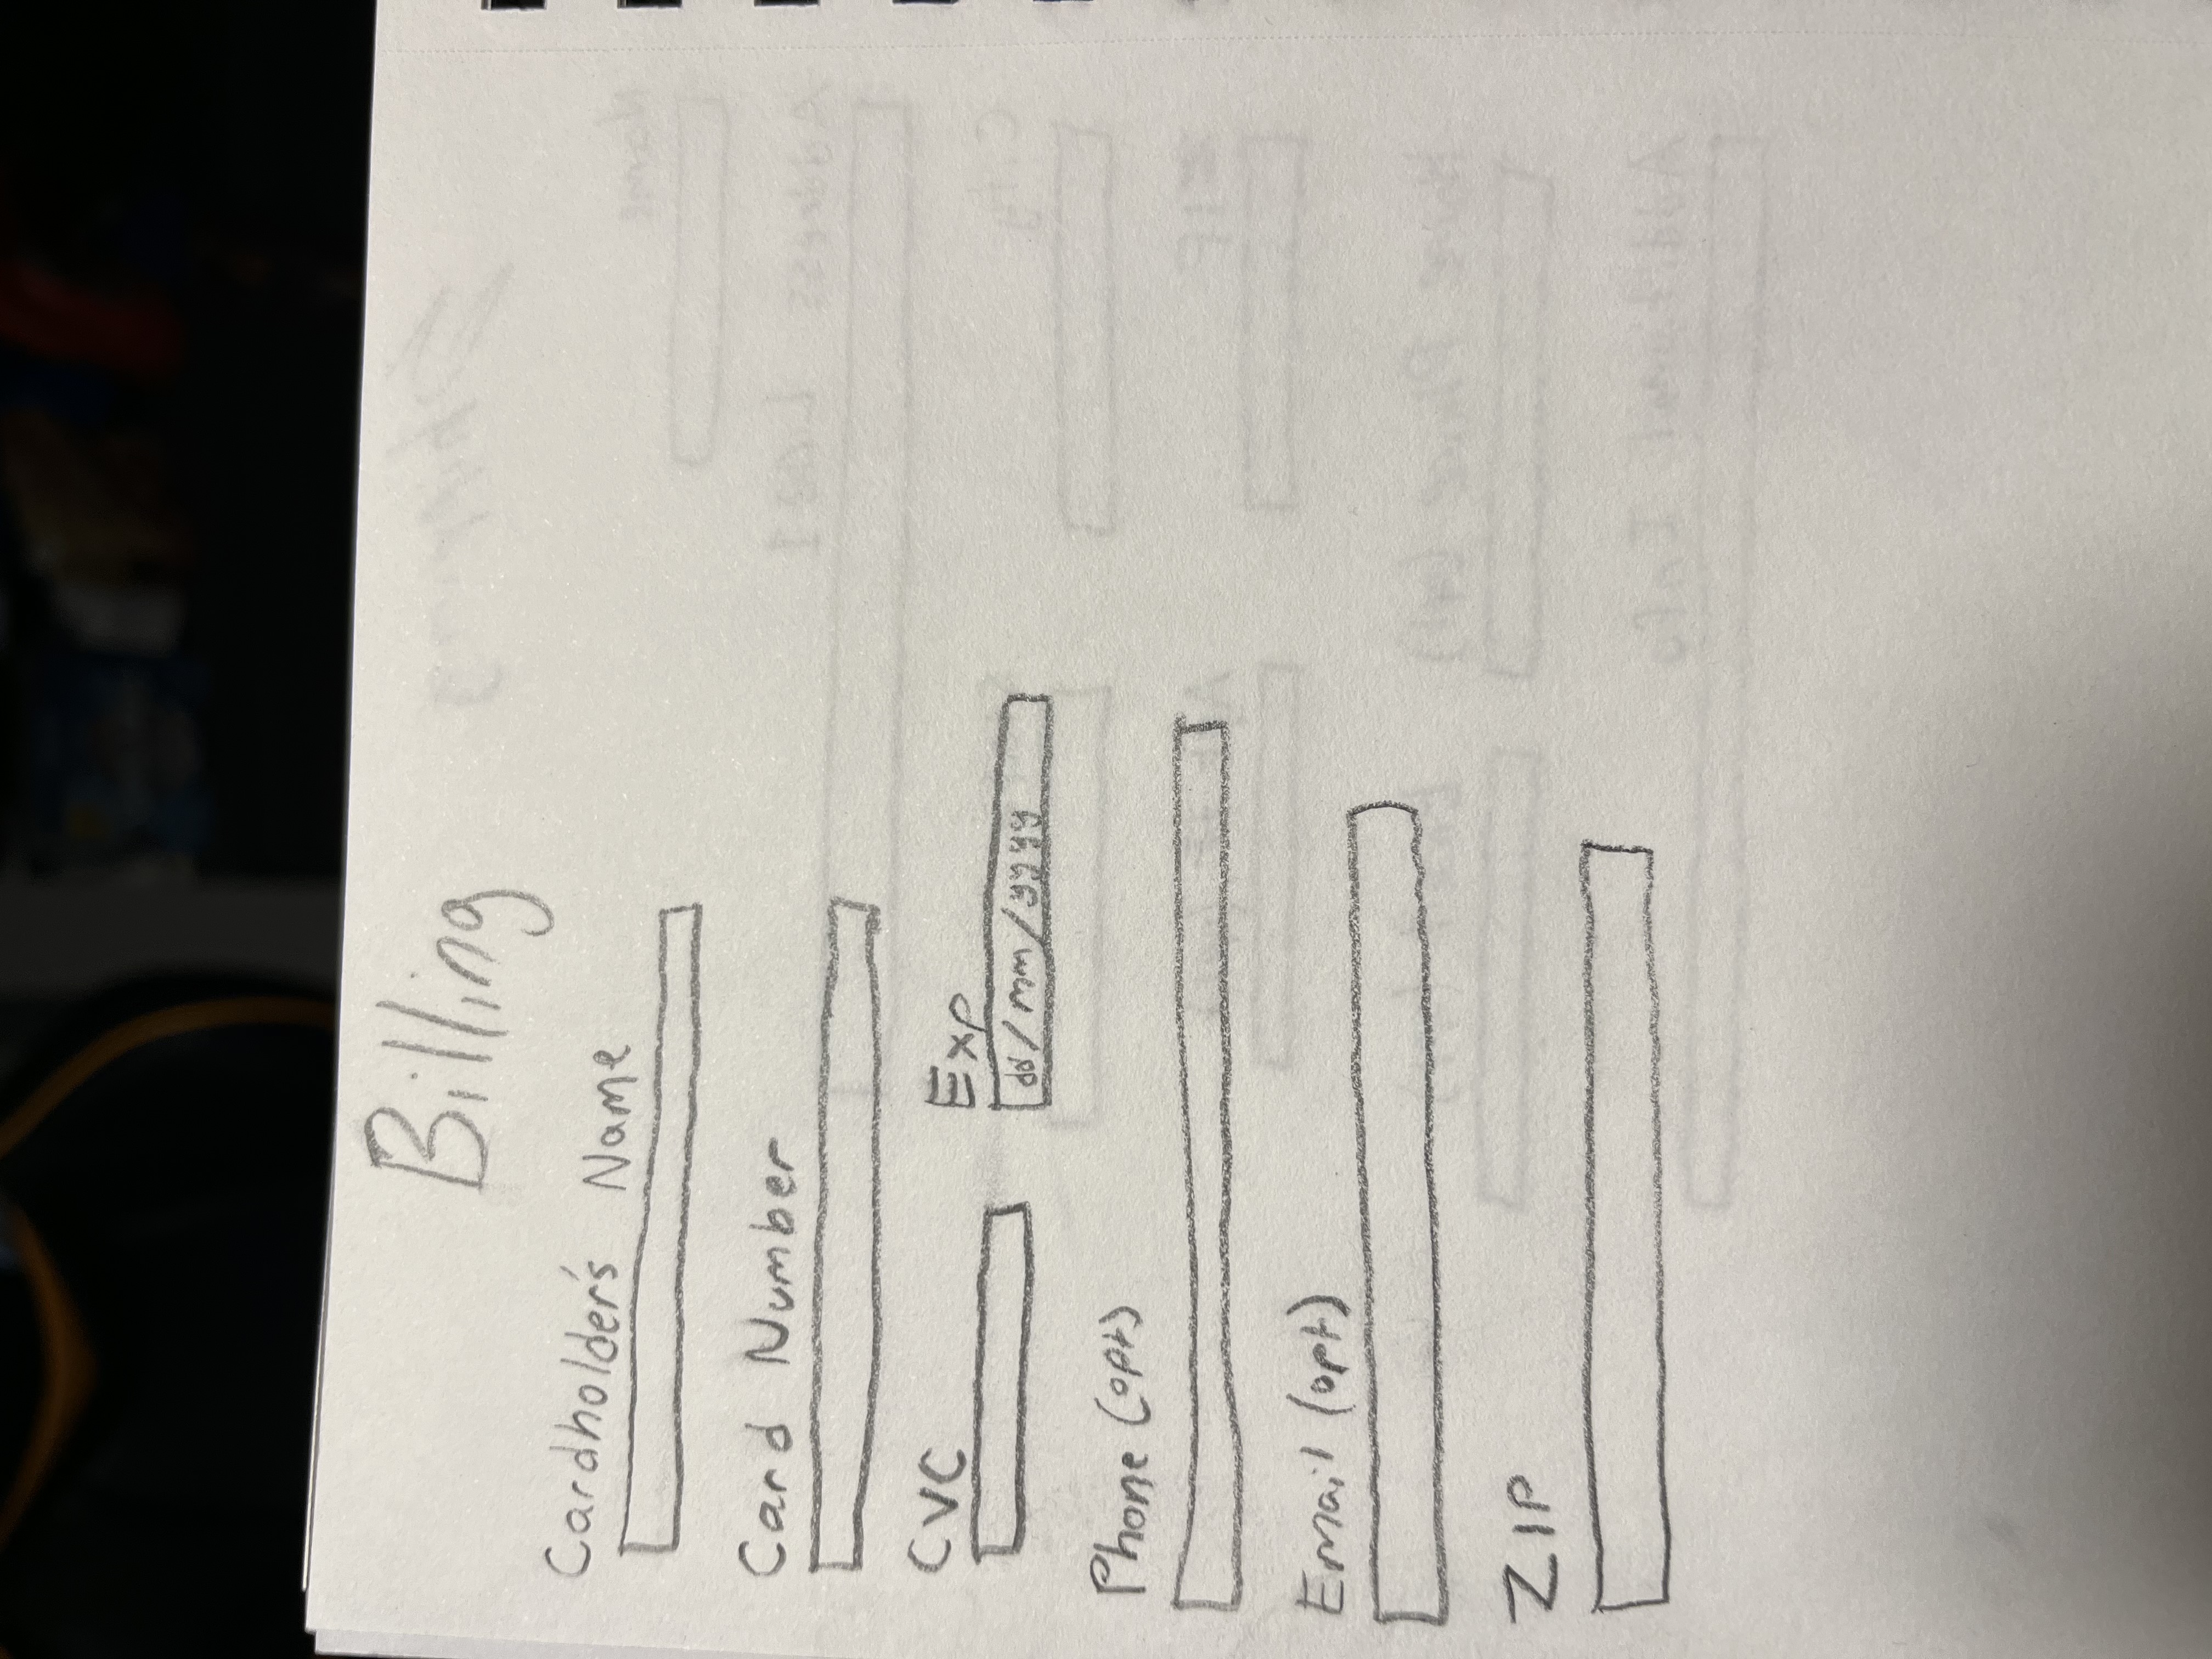 Billing
Cardholder's Name
Card Number
CVC Exp
dd/mm/yyyy
Phone (opt)
Email (opt)
ZIP